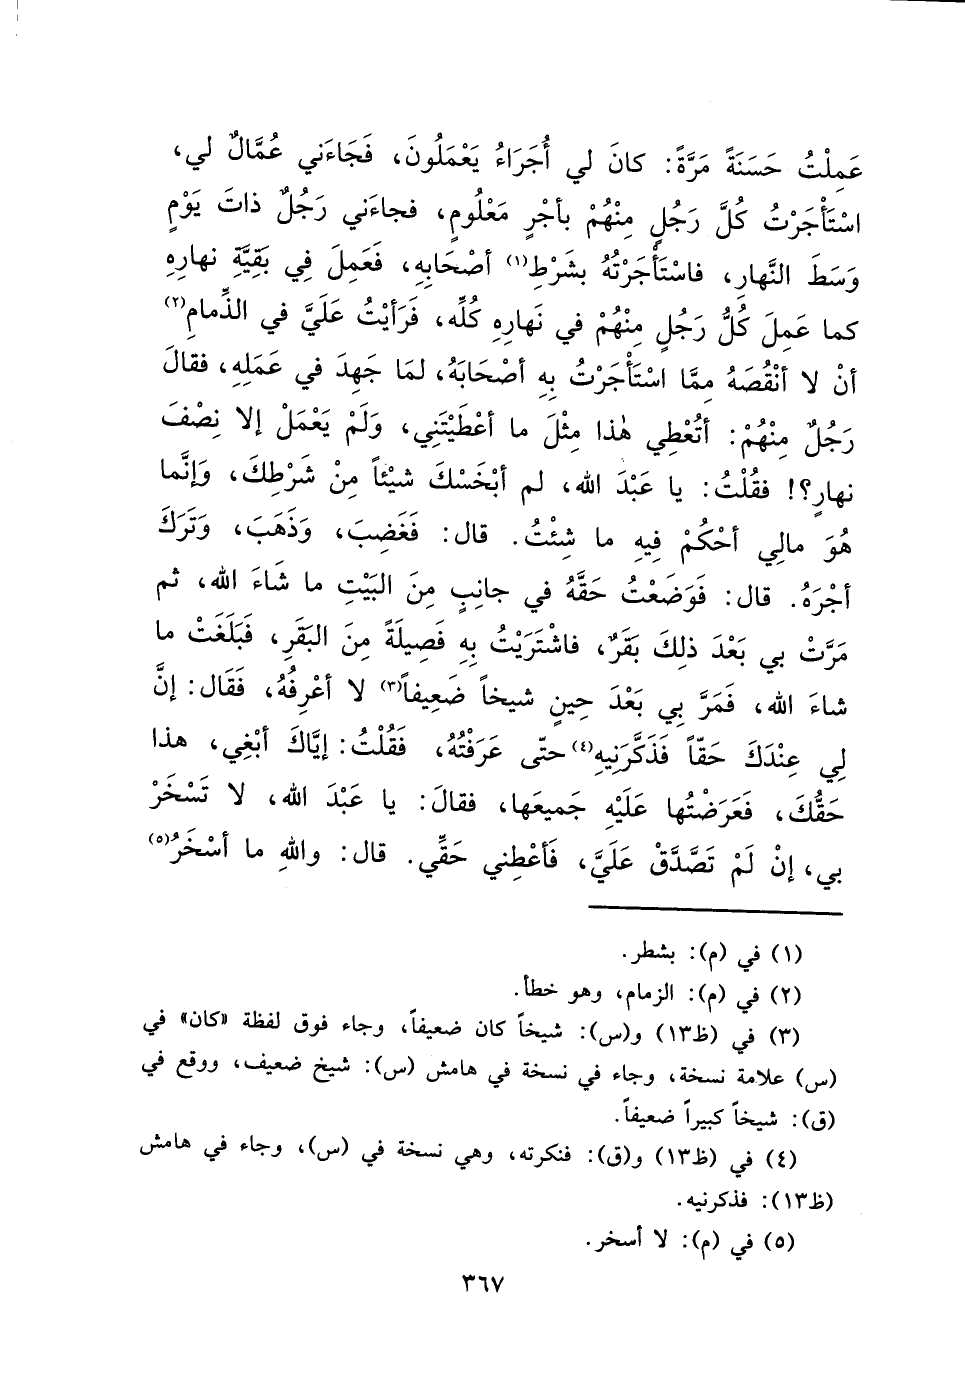 عَمِلْتُ حَسَنَةً مَرَّةً: كانَ لي أُجَرَاءُ يَعْمَلُونَ، فَجَاءَني عُمَّالٌ لي،
اسْتَأْجَرْتُ كُلَّ رَجُلٍ مِنْهُمْ بأجْرٍ مَعْلُومٍ، فجاءَني رَجُلٌ ذاتَ يَوْمٍ
وَسَطَ النَّهارِ، فاسْتَأْجَرْتُهُ بشَرْطِ(١) أصْحَابِهِ، فَعَمِلَ فِي بَقِيَّةِ نهارِهِ
كما عَمِلَ كُلُّ رَجُلٍ مِنْهُمْ في نَهارِهِ كُلِّه، فَرَأيْتُ عَلَيَّ في الذِّمامِ(٢)
أنْ لا أنْقُصَهُ مِمَّا اسْتَأْجَرْتُ بِهِ أصْحَابَهُ، لمَا جَهِدَ في عَمَلِهِ، فقالَ
رَجُلٌ مِنْهُمْ: أتُعْطِي هٰذا مِثْلَ ما أعْطَيْتَنِي، وَلَمْ يَعْمَلْ إلا نِصْفَ
نهارٍ؟! فقُلْتُ: يا عَبْدَ الله، لم أبْخَسْكَ شيْئاً مِنْ شَرْطِكَ، وَإنَّما
هُوَ مالِي أحْكُمْ فِيهِ ما شِئْتُ. قال: فَغَضِبَ، وَذَهَبَ، وَتَرَكَ
أجْرَهُ. قال: فَوَضَعْتُ حَقَّهُ في جانِبٍ مِنَ البَيْتِ ما شَاءَ الله، ثم
مَرَّتْ بي بَعْدَ ذلِكَ بَقَرٌ، فاشْتَرَيْتُ بِهِ فَصِيلَةً مِنَ البَقَرِ، فَبَلَغَتْ ما
شاءَ الله، فَمَرَّ بِي بَعْدَ حِينٍ شيخاً ضَعِيفاً(٣) لا أعْرِفُهُ، فَقَال: إنَّ
لِي عِنْدَكَ حَقّاً فَذَكَّرَنِيهِ(٤) حتّى عَرَفْتُهُ، فَقُلْتُ: إيَّاكَ أبْغِي، هذا
حَقُّكَ، فَعَرَضْتُها عَلَيْهِ جَميعَها، فقالَ: يا عَبْدَ الله، لا تَسْخَرْ
بي، إنْ لَمْ تَصَّدَّقْ عَلَيَّ، فَأعْطِني حَقِّي. قال: واللهِ ما أسْخَرُ(٥)
(١) في (م): بشطر.
(٢) في (م): الزمام، وهو خطأ.
(٣) في (ظ١٣) و(س): شيخاً كان ضعيفاً، وجاء فوق لفظة «كان» في
(س) علامة نسخة، وجاء في نسخة في هامش (س): شيخ ضعيف، ووقع في
(ق): شيخاً كبيراً ضعيفاً.
(٤) في (ظ١٣) و(ق): فنكرته، وهي نسخة في (س)، وجاء في هامش
(ظ١٣): فذكرنيه.
(٥) في (م): لا أسخر.
٣٦٧